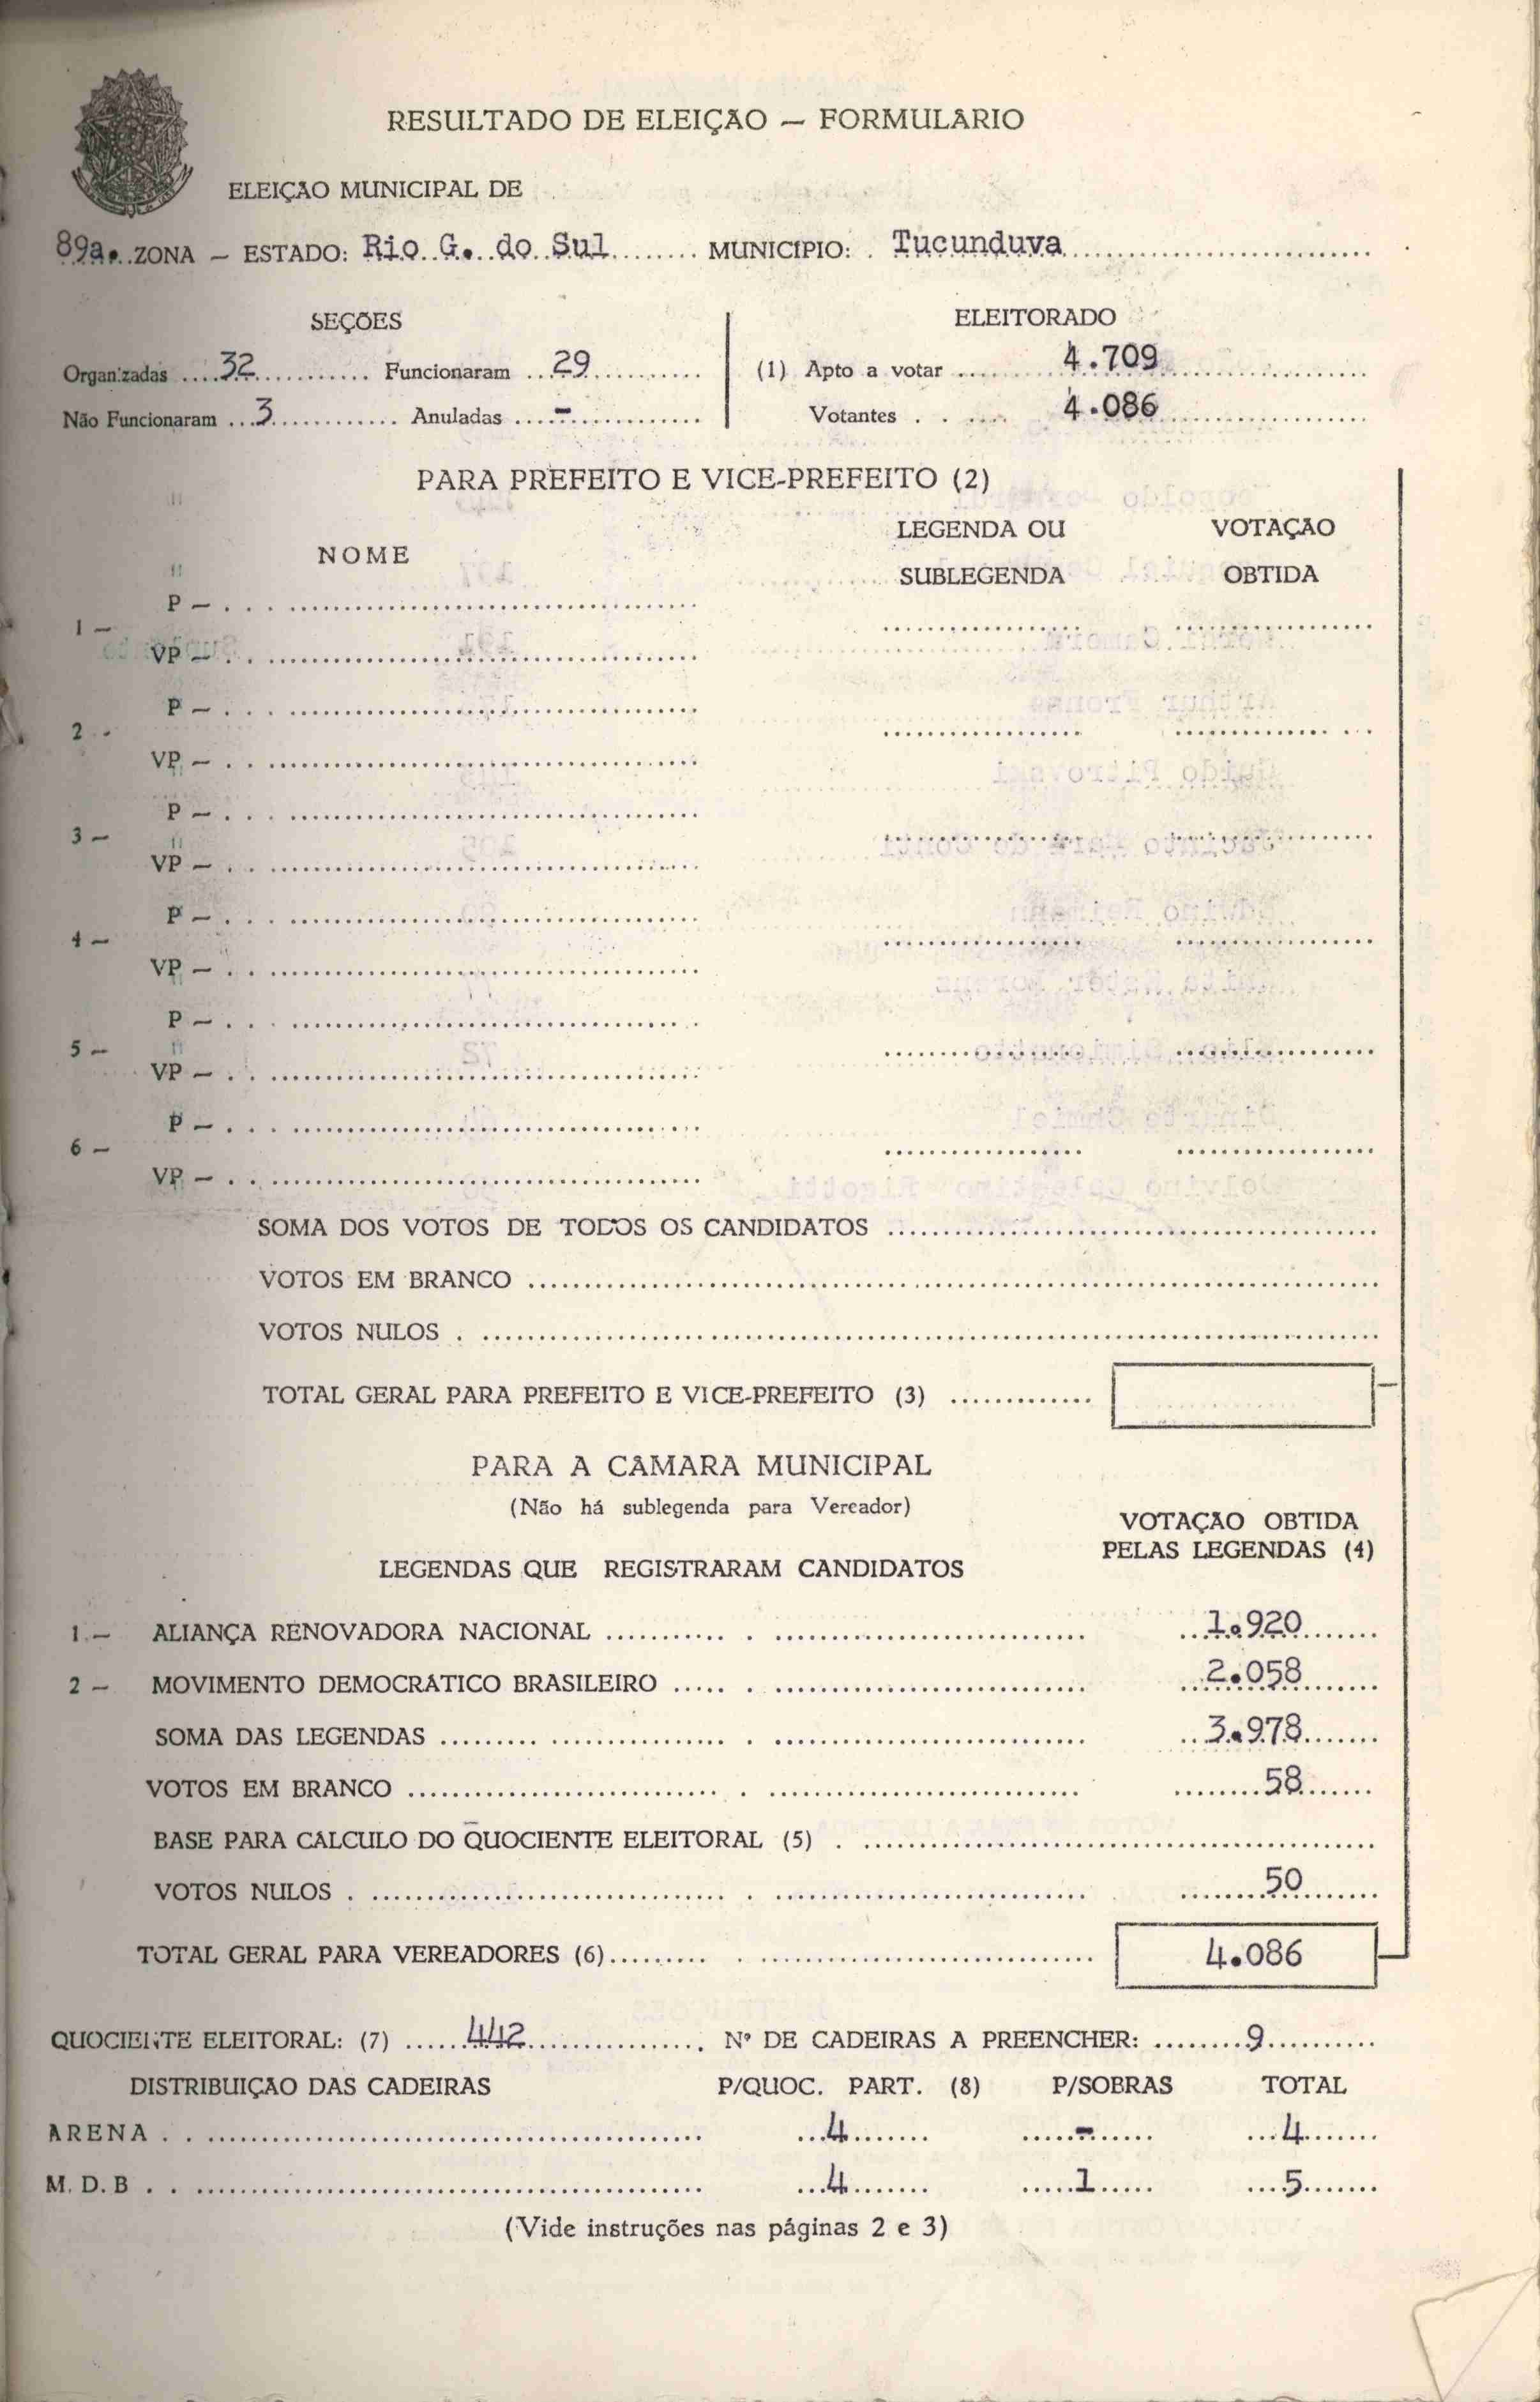 RESULTADO DE ELEIÇÃO — FORMULÁRIO
ELEIÇÃO MUNICIPAL DE
89a. ZONA — ESTADO: Rio G. do Sul MUNICÍPIO: Tucunduva
SEÇÕES
ELEITORADO
Organizadas 32 Funcionaram 29 (1) Apto a votar 4.709
Não Funcionaram 3 Anuladas - Votantes 4.086
PARA PREFEITO E VICE-PREFEITO (2)
NOME
LEGENDA OU SUBLEGENDA
VOTAÇÃO OBTIDA
P —
1 —
VP —
P —
2 -
VP —
P —
3 —
VP —
P —
4 —
VP —
P —
5 —
VP —
P —
6 —
VP —
SOMA DOS VOTOS DE TODOS OS CANDIDATOS
VOTOS EM BRANCO
VOTOS NULOS
TOTAL GERAL PARA PREFEITO E VICE-PREFEITO (3)
PARA A CÂMARA MUNICIPAL
(Não há sublegenda para Vereador)
VOTAÇÃO OBTIDA
PELAS LEGENDAS (4)
LEGENDAS QUE REGISTRARAM CANDIDATOS
1 — ALIANÇA RENOVADORA NACIONAL 1.920
2 — MOVIMENTO DEMOCRÁTICO BRASILEIRO 2.058
SOMA DAS LEGENDAS 3.978
VOTOS EM BRANCO 58
BASE PARA CÁLCULO DO QUOCIENTE ELEITORAL (5)
VOTOS NULOS 50
TOTAL GERAL PARA VEREADORES (6) 4.086
QUOCIENTE ELEITORAL: (7) 442 Nº DE CADEIRAS A PREENCHER: 9
DISTRIBUIÇÃO DAS CADEIRAS P/QUOC. PART. (8) P/SOBRAS TOTAL
ARENA 4 - 4
M. D. B 4 1 5
(Vide instruções nas páginas 2 e 3)